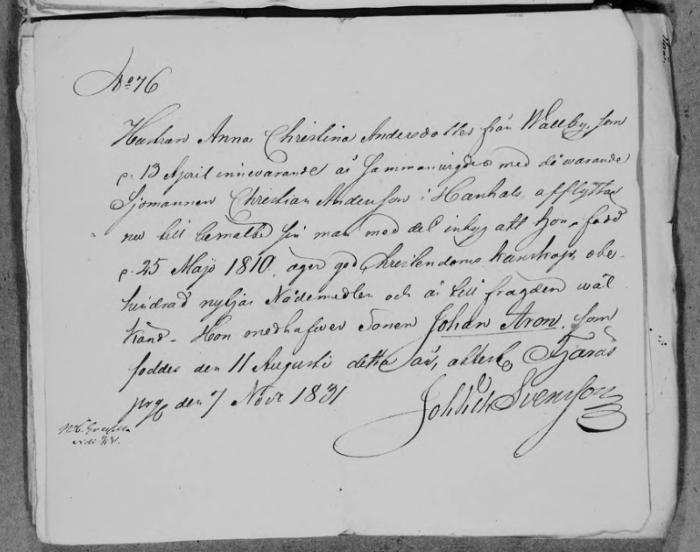 No 76
Hustrun Anna Christina Andersdotter från Wallby, som
d. 13 April innevarande år sammanvigdes med då warande
Sjömannen Christian Andersson i Hanhals, afflyttar
nu till bemälte sin man med det intyg att hon, född
d. 25 Majo 1810, äger god Christendoms kunskap, obe-
hindrad nyttjar Nådemedlen och är till frägden wäl
känd. Hon medhafwer Sonen Johan Aron, som
föddes den 11 Augusti detta år, Fjärås
den 7 Novr 1831
Svensson